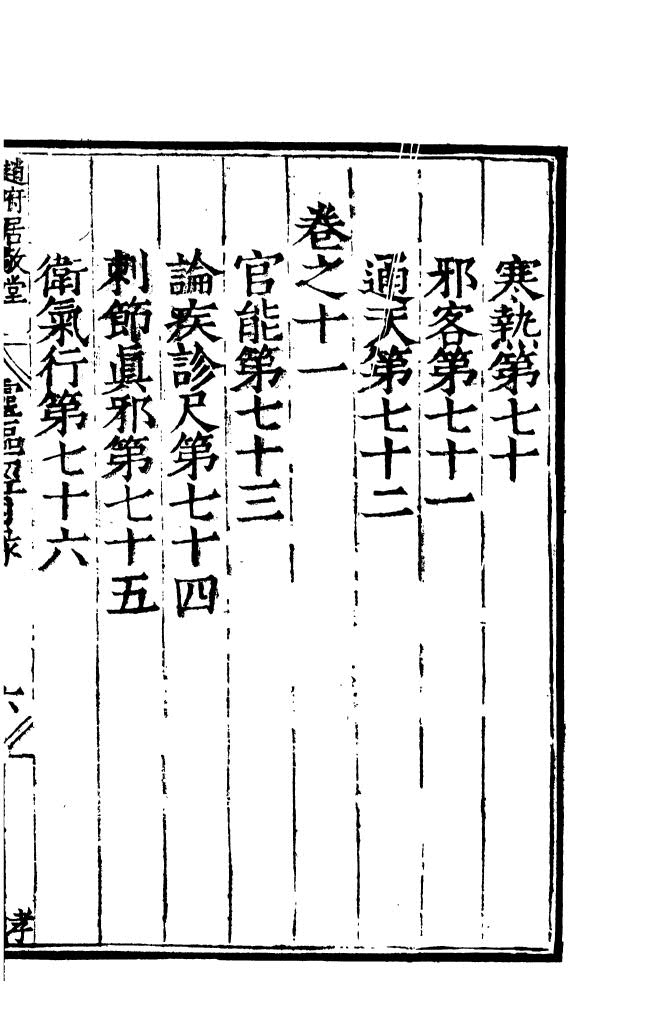 寒熱第七十
邪客第七十一
通天第七十二
卷之十一
官能第七十三
論疾診尺第七十四
刺節眞邪第七十五
衛氣行第七十六
趙府居敬堂
靈樞經目錄
六
孝